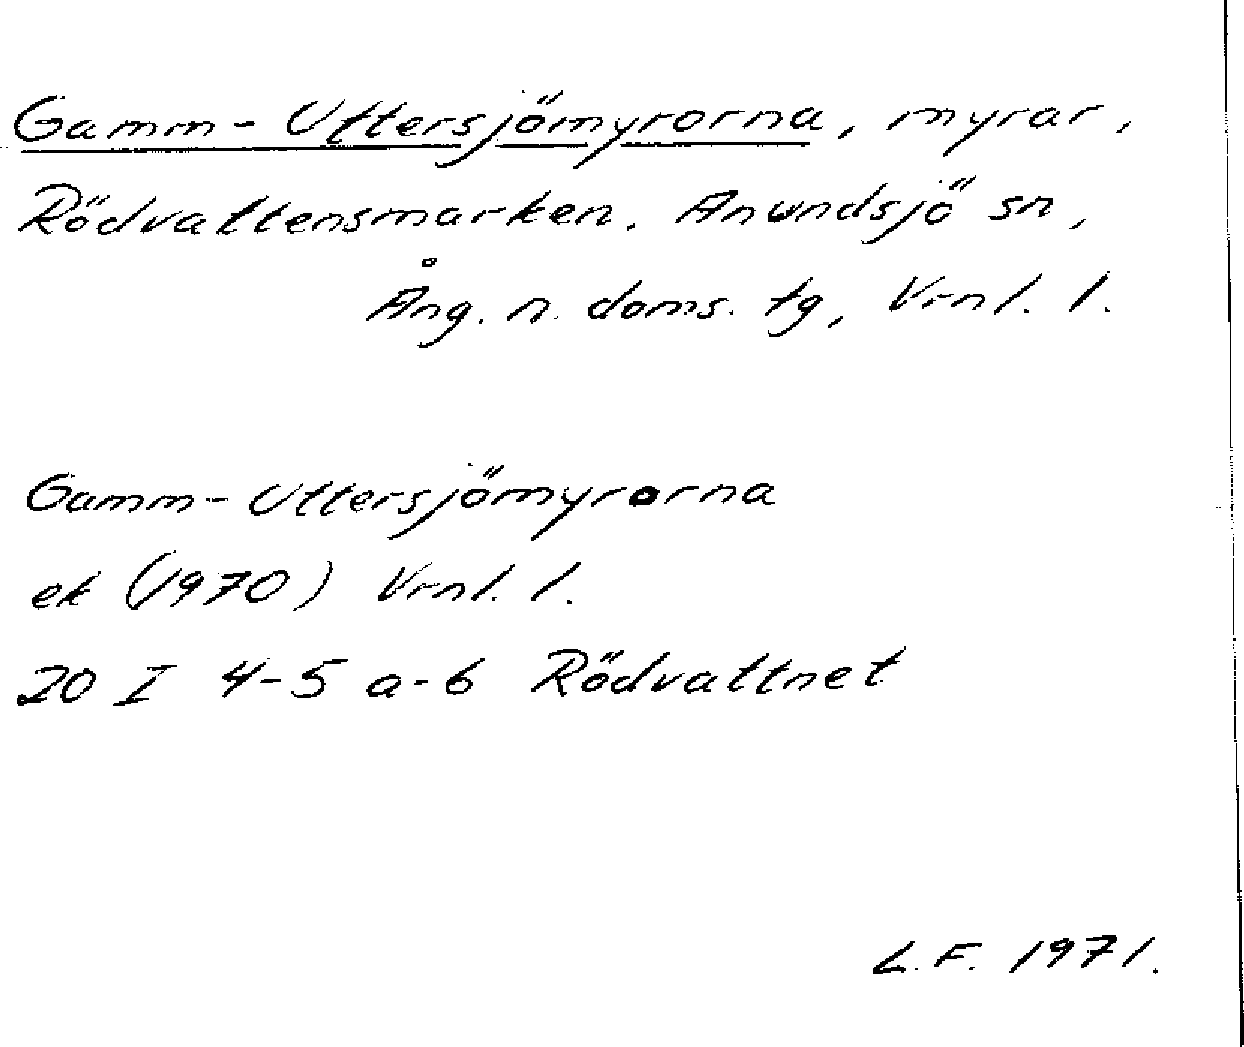 Gamm-Uttersjömyrorna, myrar,
Rödvattensmarken. Anundsjö sn,
Ång. n. doms. tg, Vrnl. l.
Gamm-Uttersjömyrorna
ek (1970) Vrnl. l.
20 I 4-5 a-b Rödvattnet
L.F. 1971.